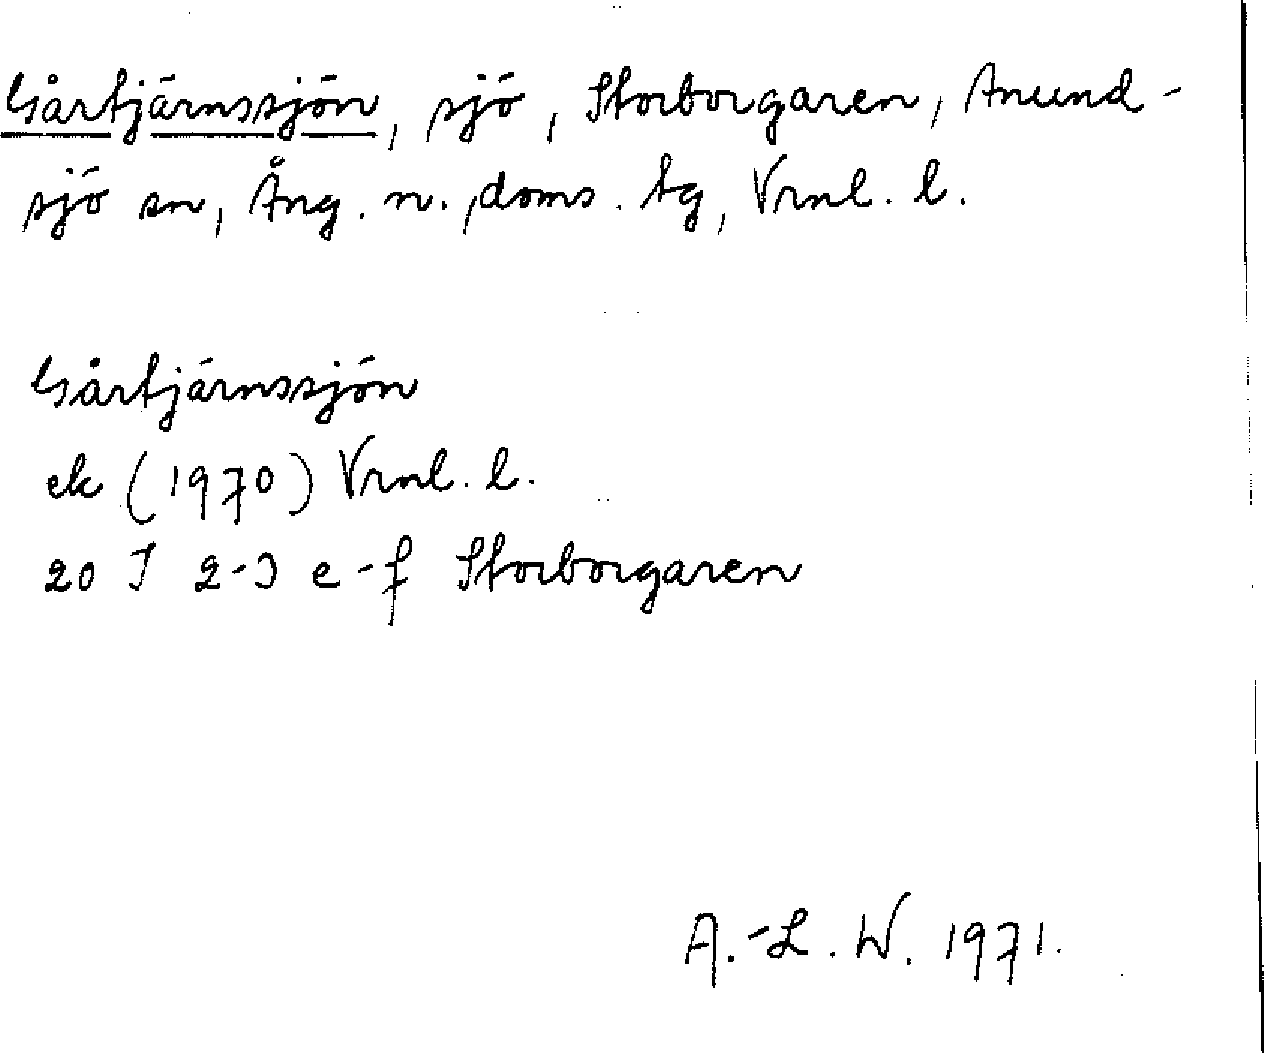 Gårtjärnssjön, sjö, Storborgaren, Anund-
sjö sn, Ång. n. doms. tg, Vrnl. l.
Gårtjärnssjön
ek (1970) Vrnl. l.
20 I 2-3 e-f Storborgaren
A.-L. W. 1971.